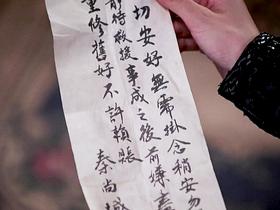 切安好無需掛念稍安勿
時救援事成之後前嫌
重修舊好不許賴賬 秦尚